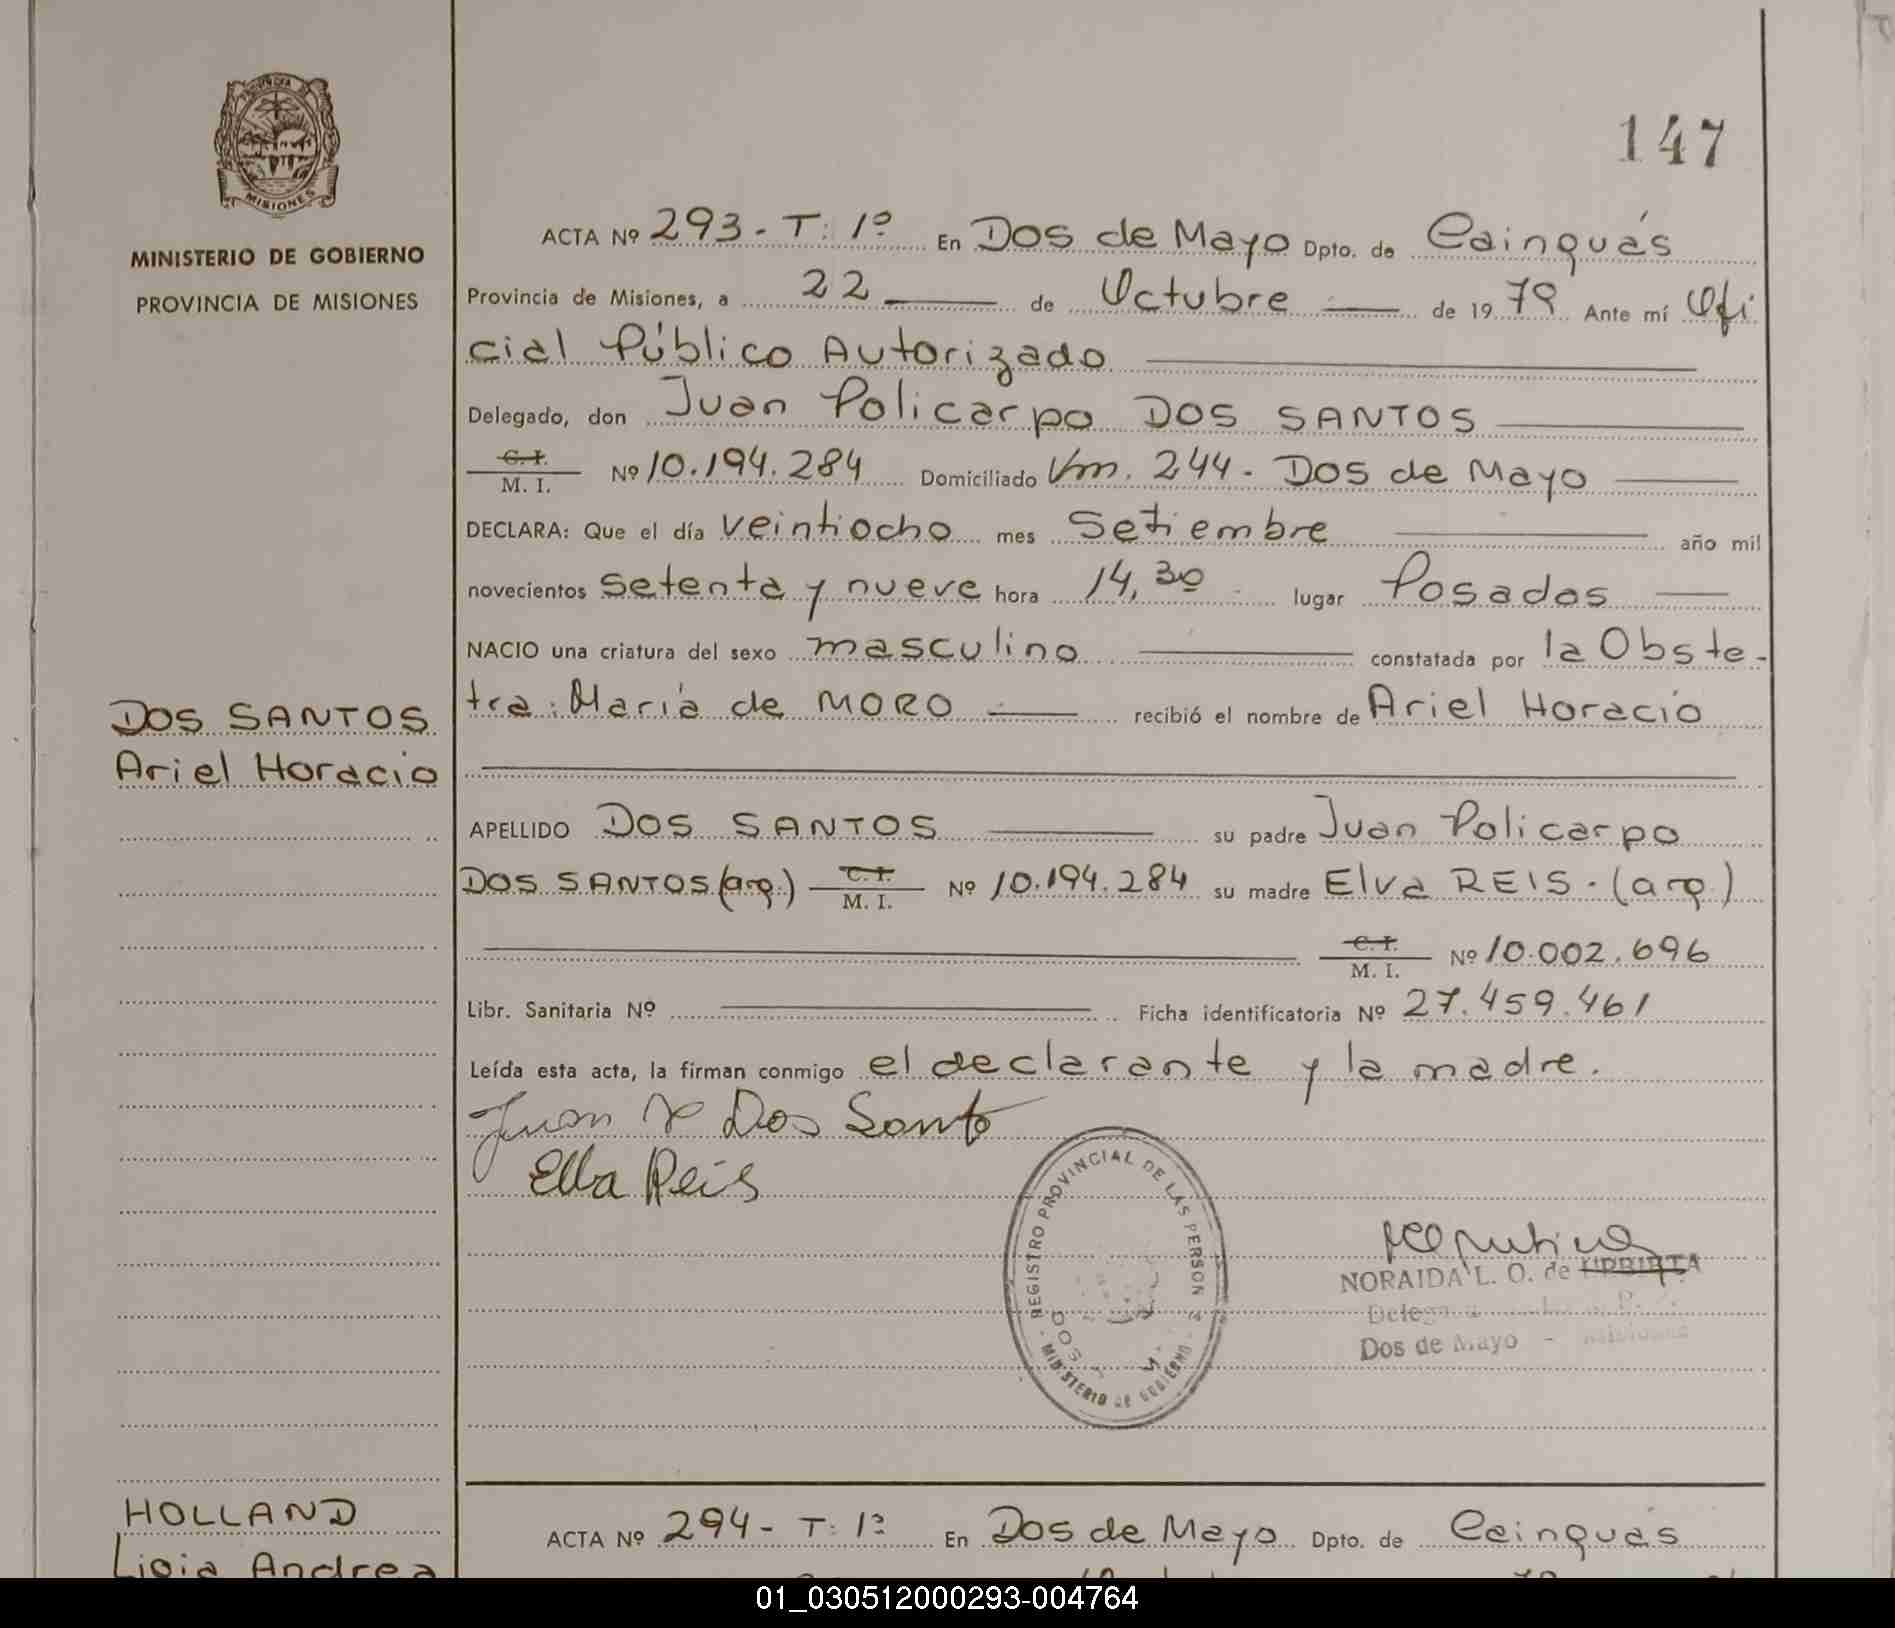 PROVINCIA DE
MISIONES
MINISTERIO DE GOBIERNO
PROVINCIA DE MISIONES
147
ACTA Nº 293 - T: 1º En Dos de Mayo Dpto. de Cainguás
Provincia de Misiones, a 22 de Octubre de 1979 Ante mí Ofi
cial Público Autorizado
Delegado, don Juan Policarpo DOS SANTOS
C. I.
M. I. Nº 10.194.284 Domiciliado Km. 244 - Dos de Mayo
DECLARA: Que el día veintiocho mes Setiembre año mil
novecientos setenta y nueve hora 14,30 lugar Posadas
NACIO una criatura del sexo masculino constatada por la Obste-
tra: María de MORO recibió el nombre de Ariel Horacio
DOS SANTOS
Ariel Horacio
APELLIDO DOS SANTOS su padre Juan Policarpo
DOS SANTOS (arg.) C. I. M. I. Nº 10.194.284 su madre Elva REIS - (arg.)
C. I.
M. I. Nº 10.002.696
Libr. Sanitaria Nº Ficha identificatoria Nº 27.459.461
Leída esta acta, la firman conmigo el declarante y la madre.
Juan P Dos Santo
Elba Reis
REGISTRO PROVINCIAL DE LAS PERSON
MINISTERIO DE GOBIERNO
DOS
NORAIDA L. O. de URBIETA
Dos de Mayo - Misiones
HOLLAND
Ligia Andrea
ACTA Nº 294 - T: 1º En Dos de Mayo Dpto. de Cainguás
01_030512000293-004764